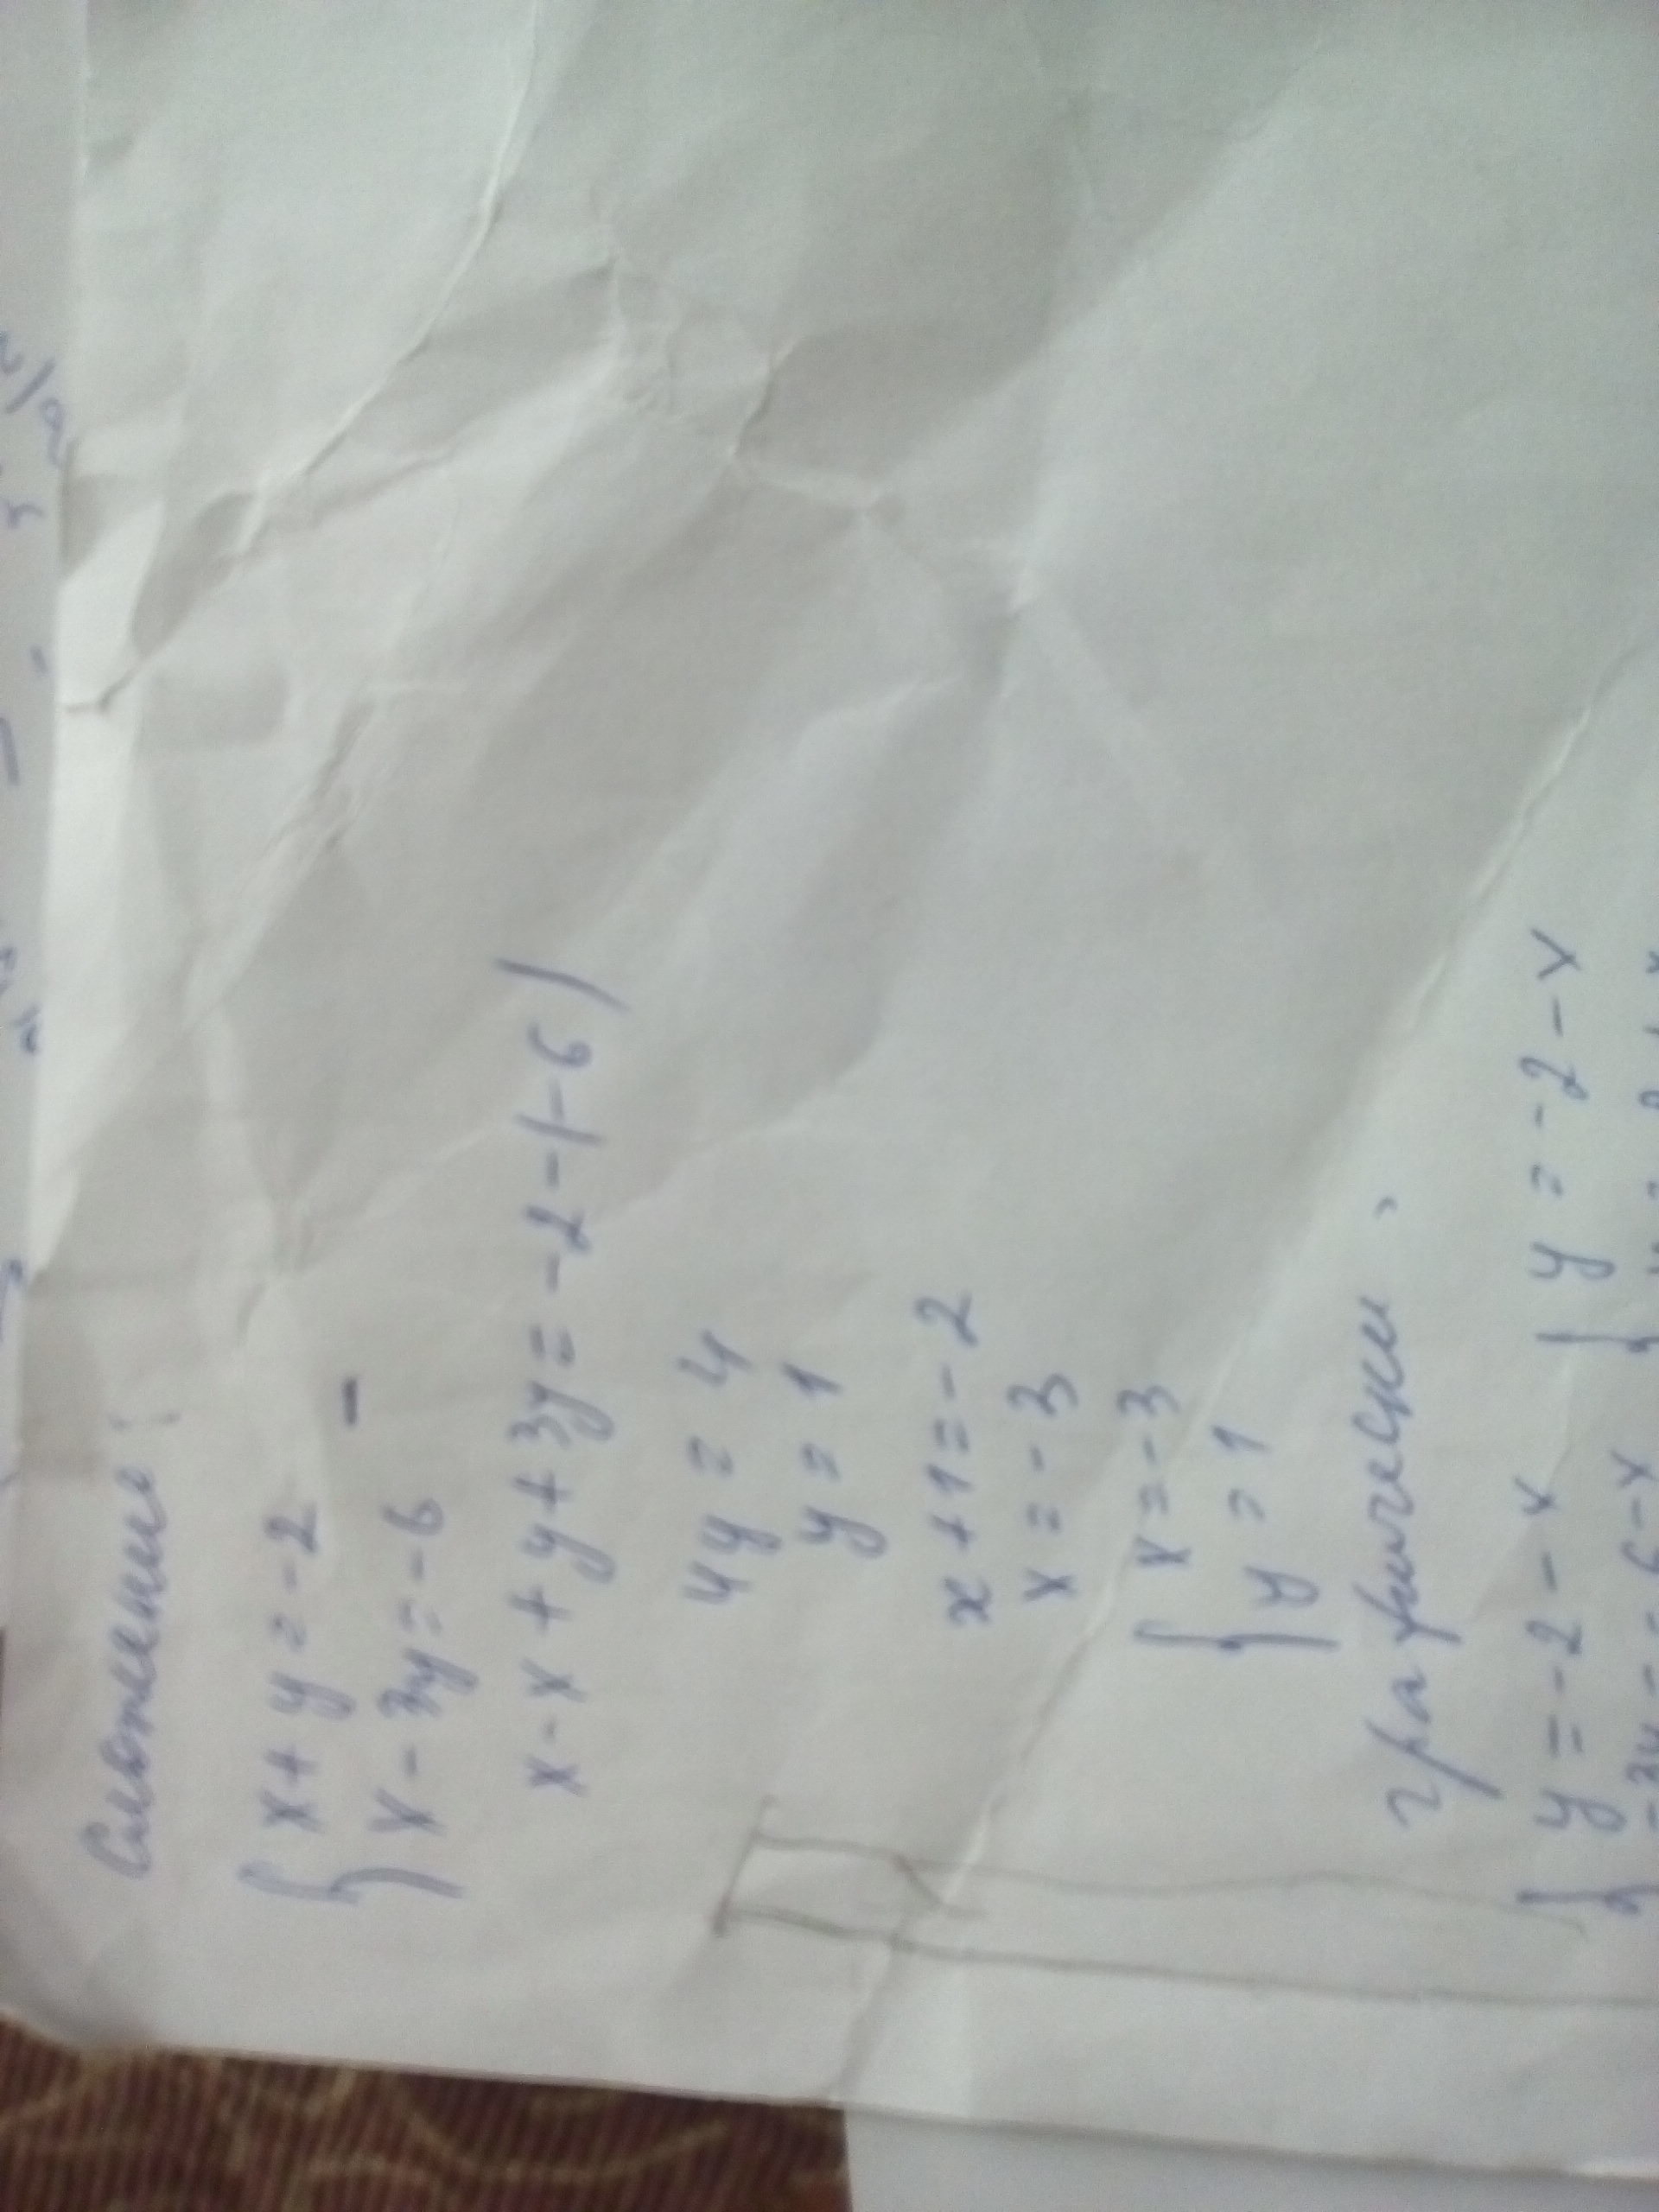 Сложение:
{ x + y = -2
{ x - 3y = -6 -
x - x + y + 3y = -2 - (-6)
4y = 4
y = 1
x + 1 = -2
x = -3
{ x = -3
{ y = 1
графически
{ y = -2 - x { y = -2 - x
{ -3y = -6 - x {